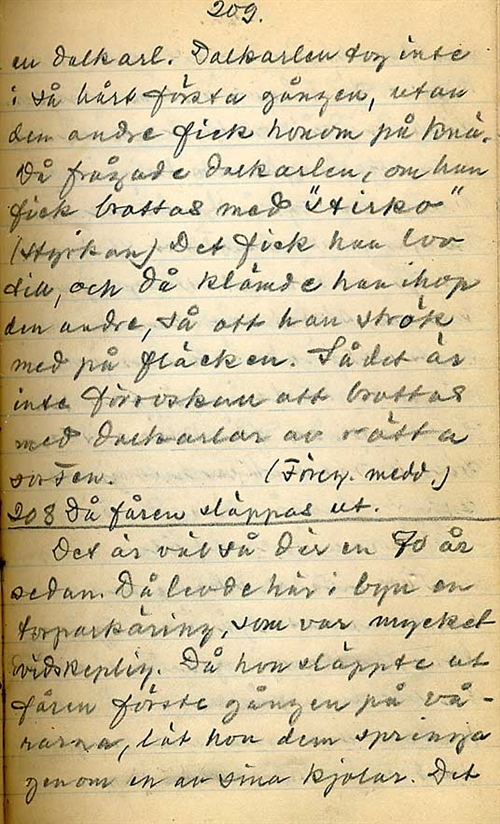 209.
en dalkarl. Dalkarlen tog inte
i så hårt första gången, utan
den andre fick honom på knä.
Då frågade dalkarlen, om han
fick brottas med "stirko"
(styrkan) Det fick han lov
till, och då klämde han ihop
den andre, så att han strök
med på fläcken. Så det är
inte förroskan att brottas
med dalkarlar av rätta
sorten. (Föreg. medd.)
208 Då fåren släppas ut.
Det är väl så där en 70 år
sedan. Då levde här i byn en
torparkäring, som var mycket
vidskeplig. Då hon släppte ut
fåren förste gången på vå-
rarna, lät hon dem springa
genom en av sina kjolar. Det